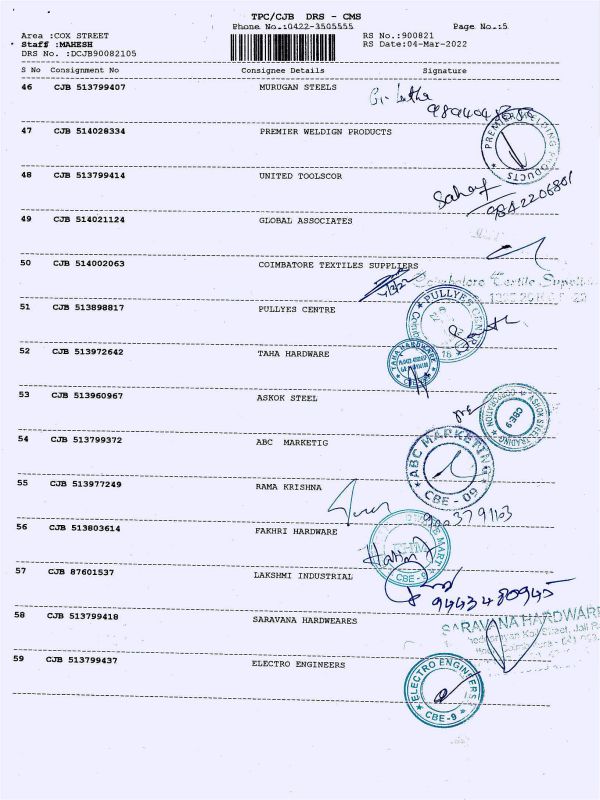 TPC/CJB DRS - CMS
Phone No.:0422-3505555
Page No.:5
Area :COX STREET
RS No.:900821
Staff :MAHESH
RS Date:04-Mar-2022
DRS No. :DCJB90082105
S No Consignment No Consignee Details Signature
46 CJB 513799407 MURUGAN STEELS
47 CJB 514028334 PREMIER WELDIGN PRODUCTS
PREMIER WELDING PRODUCTS
48 CJB 513799414 UNITED TOOLSCOR
9842206801
49 CJB 514021124 GLOBAL ASSOCIATES
50 CJB 514002063 COIMBATORE TEXTILES SUPPLIERS
Coimbatore Textile
51 CJB 513898817 PULLYES CENTRE
PULLYES CENTRE
52 CJB 513972642 TAHA HARDWARE
TAHA HARDWARE
53 CJB 513960967 ASKOK STEEL
ASHOK STEEL TRADING CORPORATION
CBE-9
54 CJB 513799372 ABC MARKETIG
ABC MARKETING
CBE - 09
55 CJB 513977249 RAMA KRISHNA
56 CJB 513803614 FAKHRI HARDWARE
MART
CBE - 9
57 CJB 87601537 LAKSHMI INDUSTRIAL
9443480945
58 CJB 513799418 SARAVANA HARDWEARES
SARAVANA HARDWARE
59 CJB 513799437 ELECTRO ENGINEERS
ELECTRO ENGINEERS
CBE-9